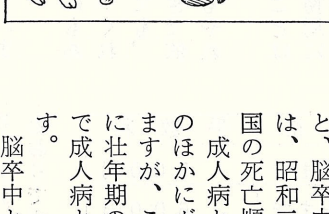 と、脳卒中
は、昭和
国の死亡順
成人病
のほかにが
ますが、こ
に壮年期の
で成人病
す。
脳卒中